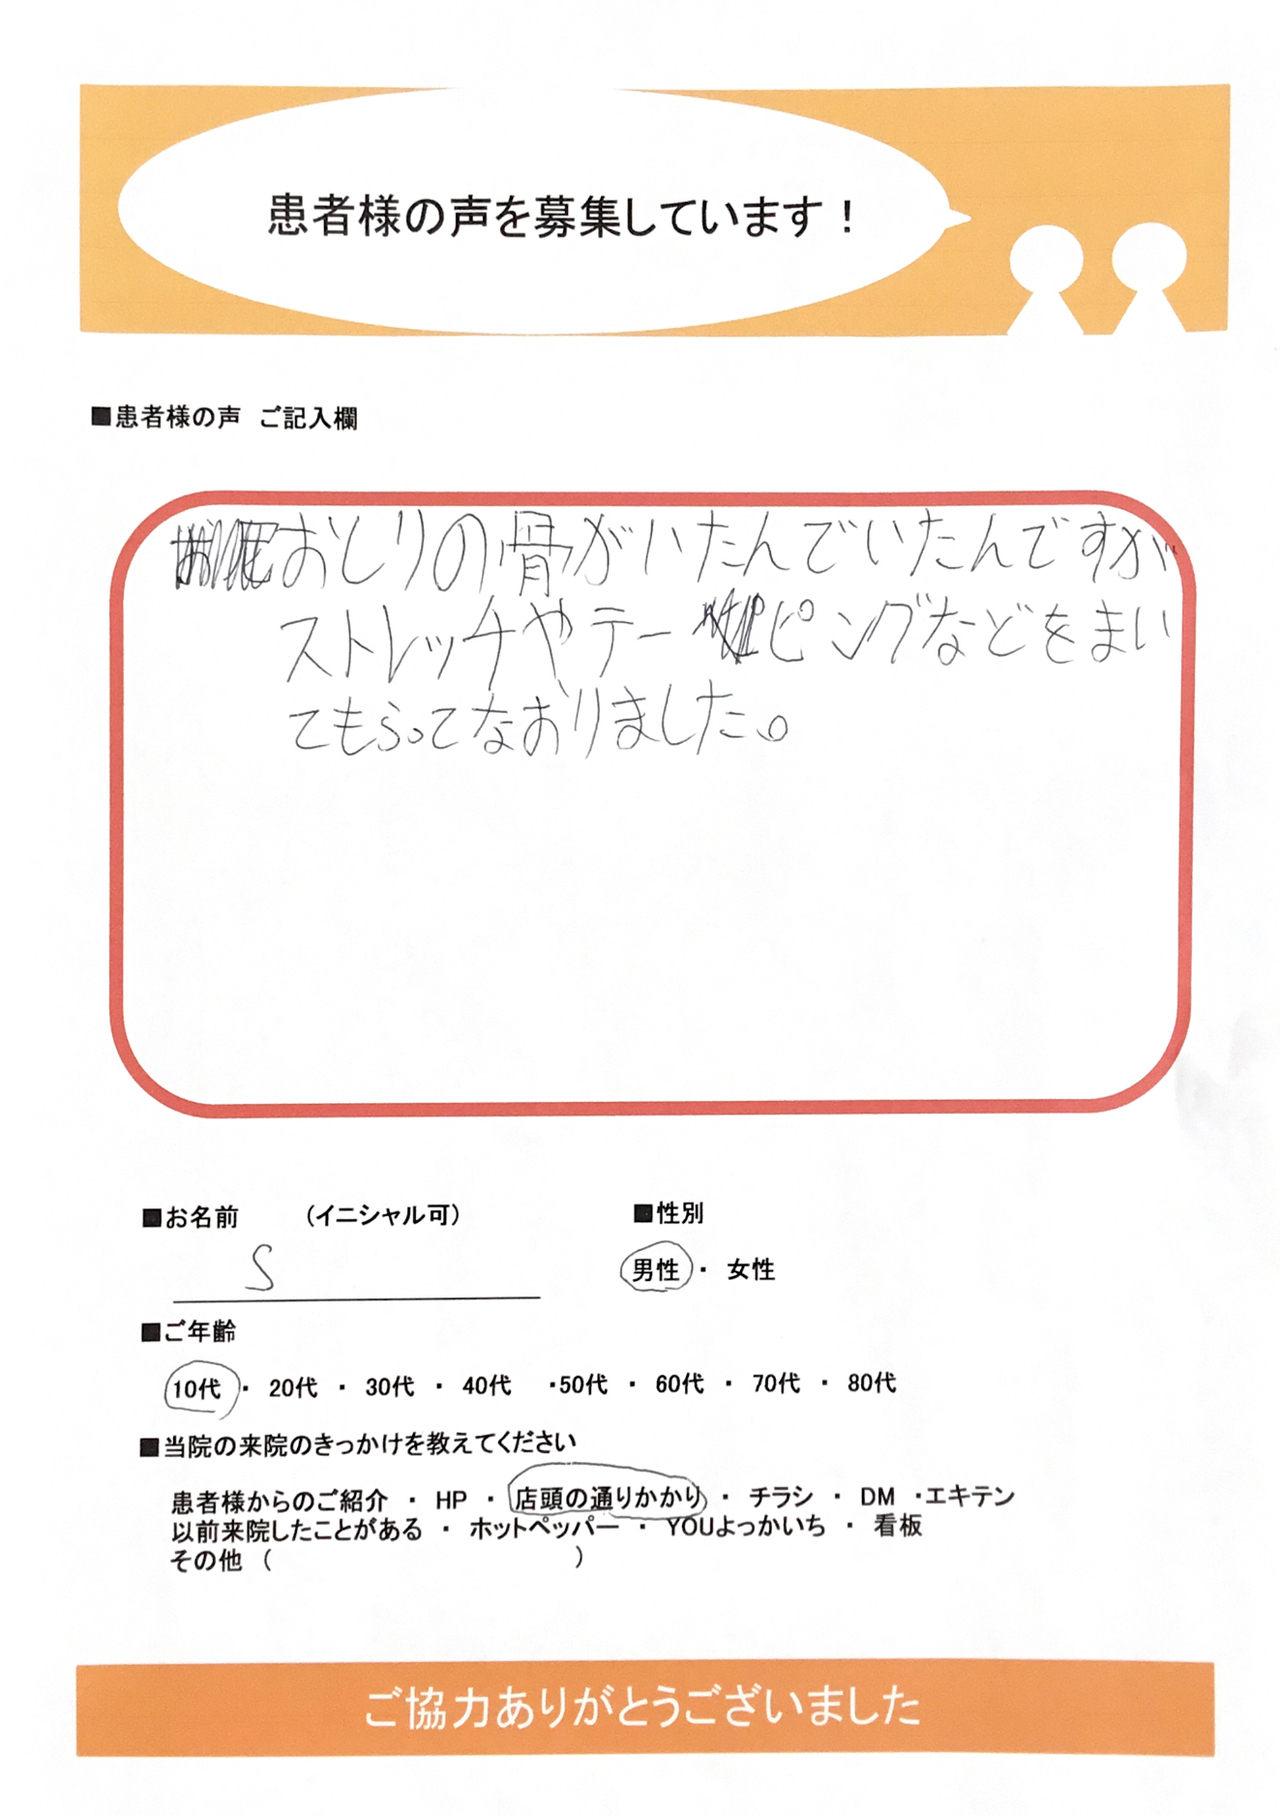 患者様の声を募集しています！
■患者様の声 ご記入欄
おしりの骨がいたんでいたんですが
ストレッチやテーピングなどをまい
てもらってなおりました。
■お名前 （イニシャル可） ■性別
S 男性 ・ 女性
■ご年齢
10代 ・ 20代 ・ 30代 ・ 40代 ・50代 ・ 60代 ・ 70代 ・ 80代
■当院の来院のきっかけを教えてください
患者様からのご紹介 ・ HP ・ 店頭の通りかかり ・ チラシ ・ DM ・エキテン
以前来院したことがある ・ ホットペッパー ・ YOUよっかいち ・ 看板
その他 （ ）
ご協力ありがとうございました